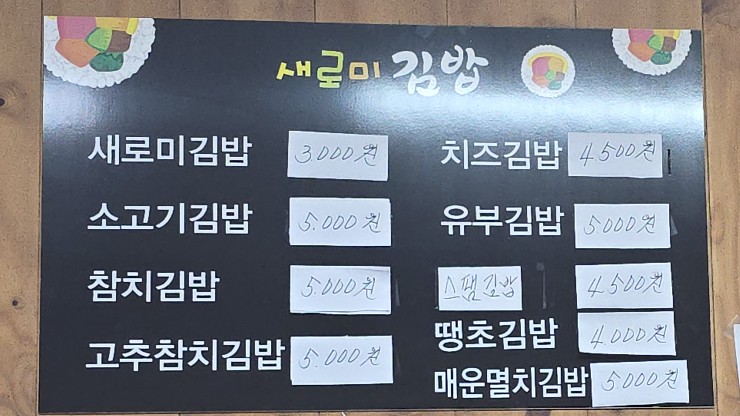 새로미 김밥
새로미김밥 3.000원
소고기김밥 5.000원
참치김밥 5.000원
고추참치김밥 5.000원
치즈김밥 4.500원
유부김밥 5000원
스팸김밥 4.500원
땡초김밥 4.000원
매운멸치김밥 5000원